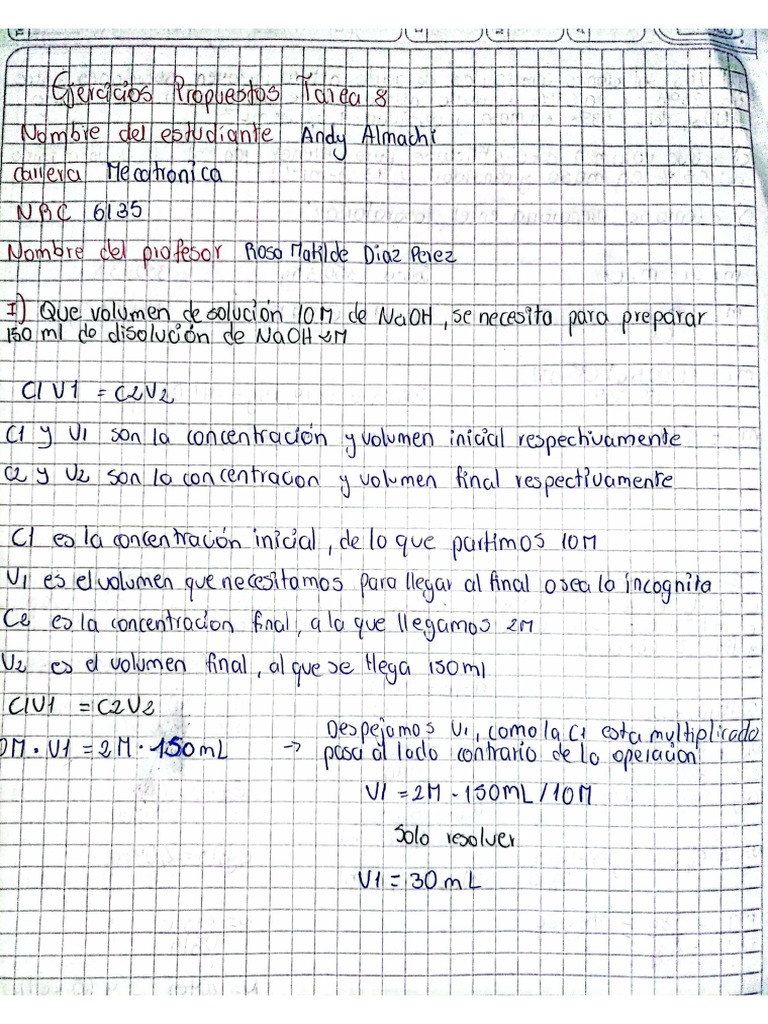 Ejercicios Propuestos Tarea 8
Nombre del estudiante Andy Almachi
Carrera Mecatronica
NRC 6135
Nombre del profesor Rosa Matilde Diaz Perez
I) Que volumen de solución 10M de NaOH, se necesita para preparar
150 ml de disolución de NaOH 2M
C1V1 = C2V2
C1 y V1 son la concentración y volumen inicial respectivamente
C2 y V2 son la concentracion y volumen final respectivamente
C1 es la concentración inicial, de lo que partimos 10M
V1 es el volumen que necesitamos para llegar al final osea la incognita
C2 es la concentracion final, a la que llegamos 2M
V2 es el volumen final, al que se llega 150ml
C1V1 = C2V2
0M · V1 = 2M · 150mL → Despejamos V1, como la C1 esta multiplicado
pasa al lado contrario de la operación
V1 = 2M · 150mL/10M
Solo resolver
V1 = 30mL